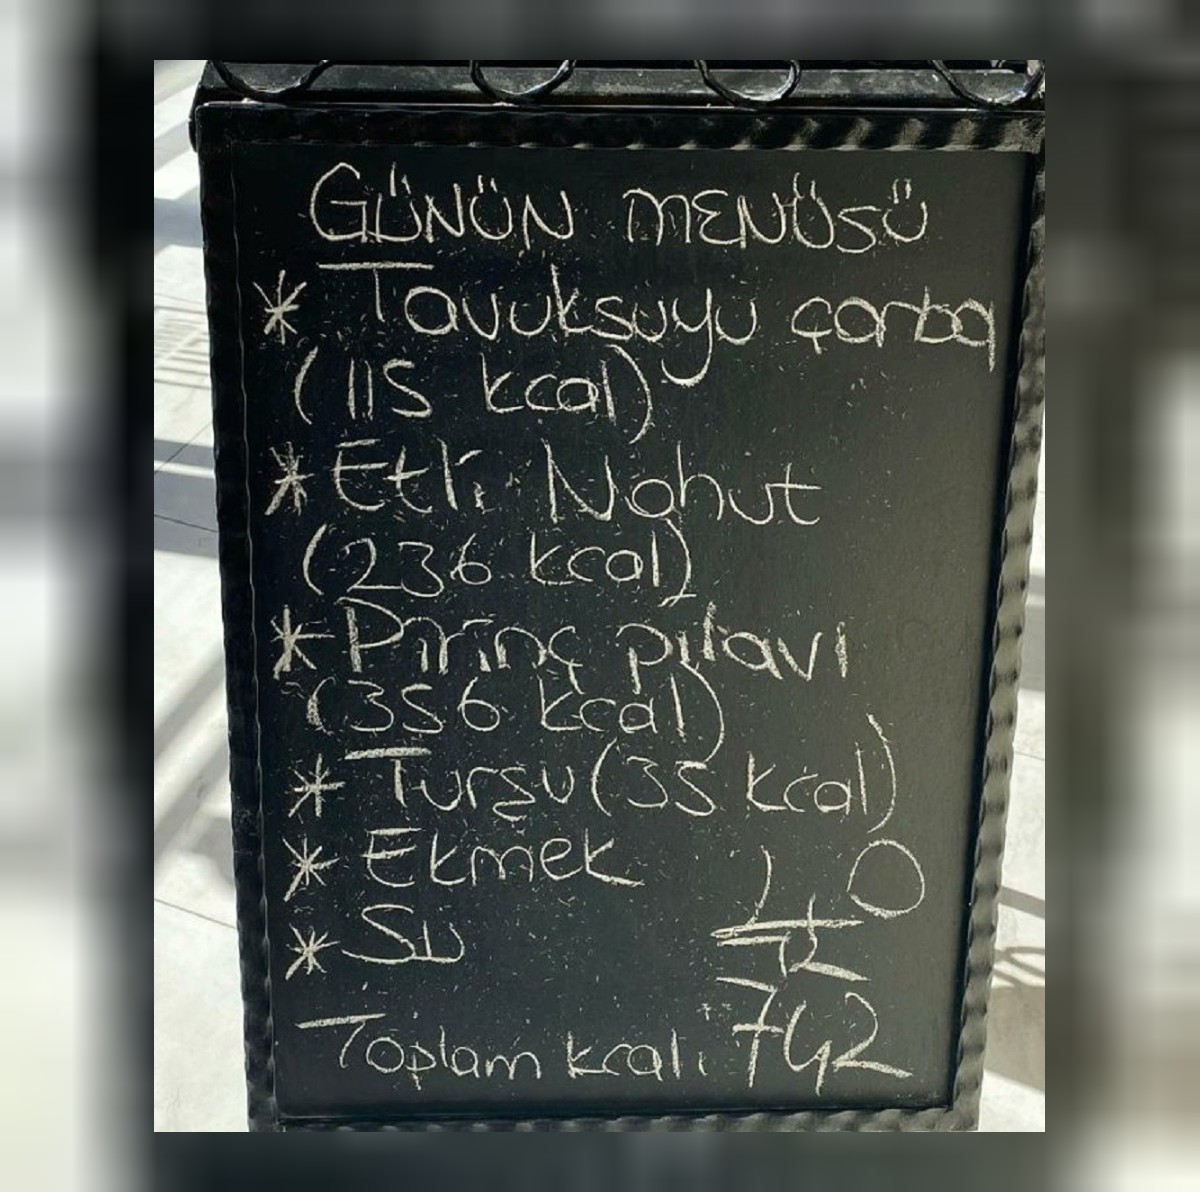 GÜNÜN MENÜSÜ
* Tavuksuyu çorba
(115 kcal)
* Etli Nohut
(236 kcal)
* Pirinç pilavı
(356 kcal)
* Turşu (35 kcal)
* Ekmek
* Su
Toplam kcal: 742